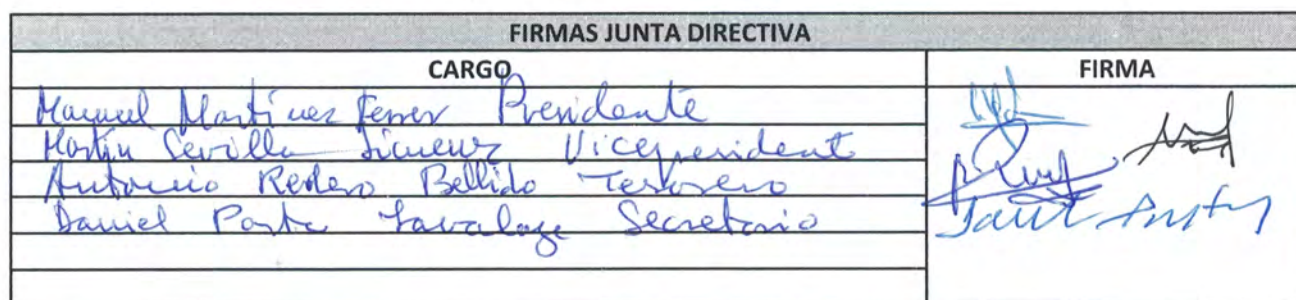 FIRMAS JUNTA DIRECTIVA
CARGO FIRMA
Manuel Martínez Ferrer Presidente
Martín Sevilla Jimenez Vicepresidente
Antonio Redero Bellido Tesorero
Daniel Secretario